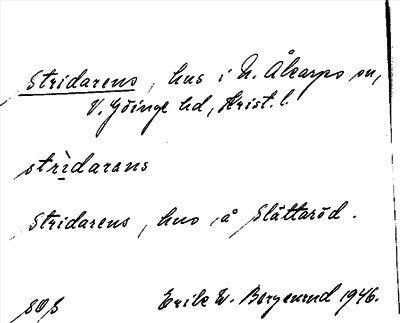 Stridarens, hus i N. Åkarps sn,
V. Göinge hd, Krist. l.
strìdarens
Stridarens, hus å Slättaröd.
Erik W. Bergenrud 1946.